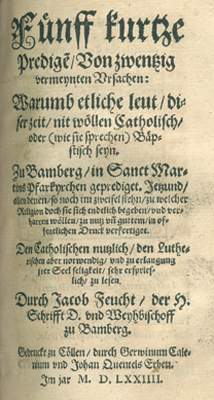 Fünff kurtze
Predigē / Von zwentzig
vermeynten Vrsachen:
Warumb etliche leut / di-
ser zeit / nit wöllen Catholisch /
oder (wie sie sprechen) Bäp-
stisch seyn.
Zu Bamberg / in Sanct Mar-
tins Pfarkyrchen geprediget. Jetzund /
allen denen / so noch im zweifel stehn / zu welcher
Religion doch sie sich endtlich begeben / vnd ver-
harren wöllen / zu nutz vn̄ guttem / in of-
fentlichen Druck verfertiget.
Den Catholischen nutzlich / den Luthe-
rischen aber notwendig / vnd zu erlangung
jrer Seel seligkeit / sehr ersprieß-
lich / zu lesen.
Durch Jacob Feucht / der H.
Schrifft D. vnd Weyhbischoff
zu Bamberg.
Gedruckt zu Cöllen / durch Gerwinum Cale-
nium vnd Johan Quentels Erben.
Im jar M. D. LXXIIII.